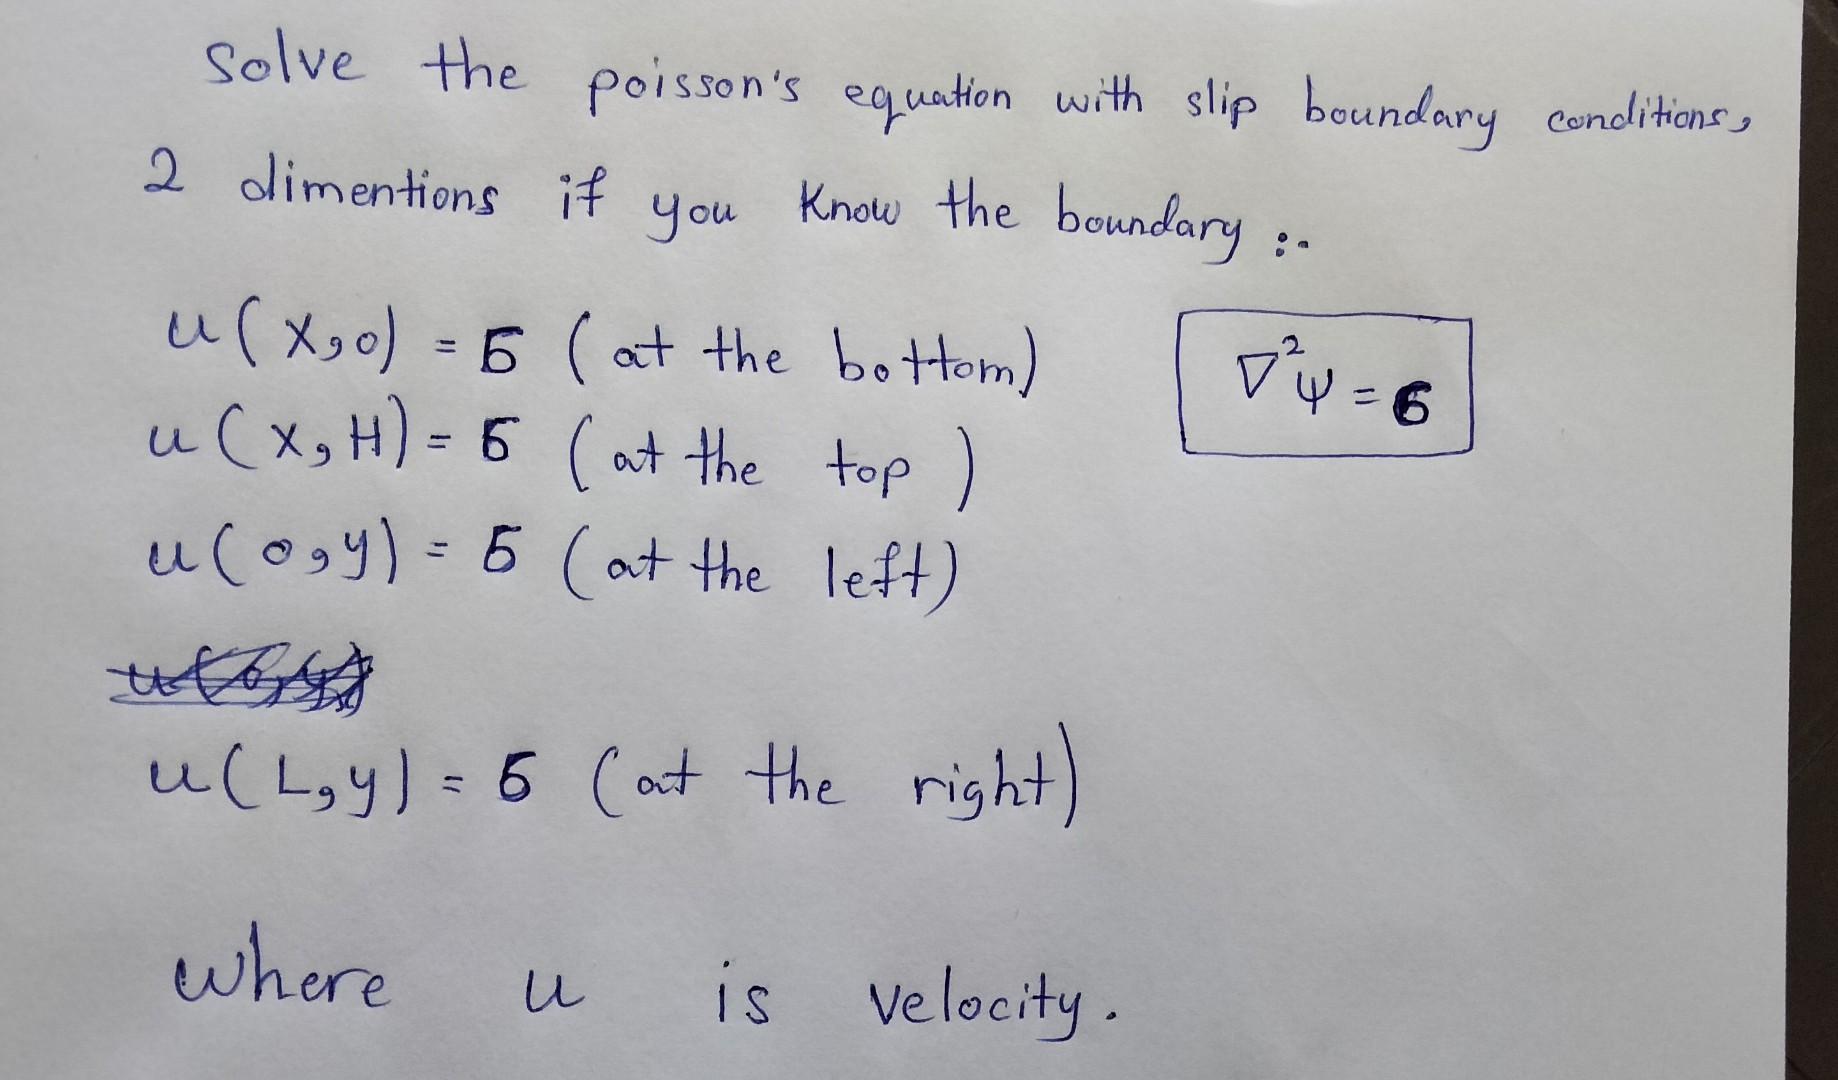 Solve the poisson's equation with slip boundary conditions,
2 dimentions if you know the boundary :-
u(x,0) = 5 (at the bottom)
∇²ψ = 6
u(x,H) = 5 (at the top)
u(0,y) = 5 (at the left)
u(L,y) = 5 (at the right)
where u is velocity.